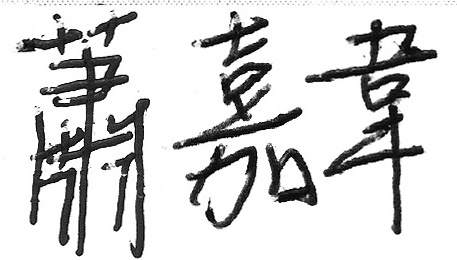 蕭嘉韋